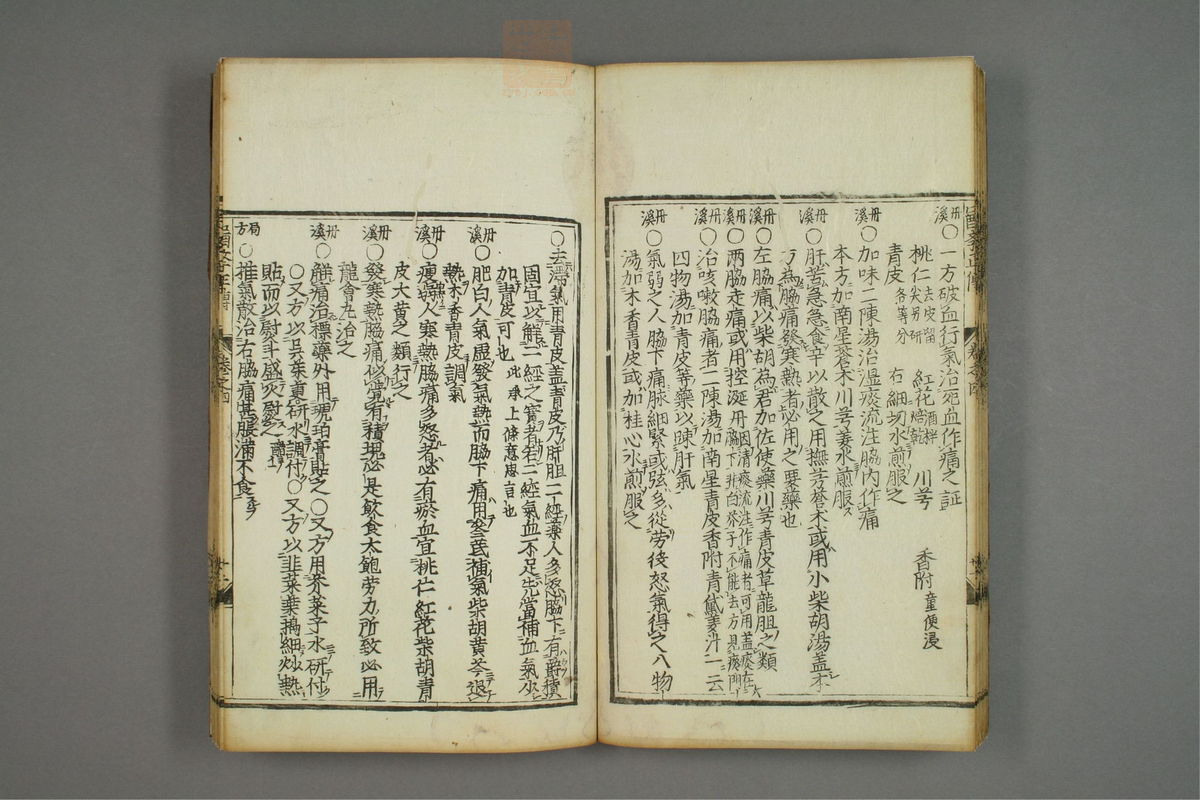 丹溪○一方破血行氣治死血作痛之証
桃仁去皮留尖另研 紅花酒拌焙乾 川芎 香附童便浸
青皮各等分 右細切水煎服之
丹溪○加味二陳湯治濕痰流注脇内作痛
本方加南星蒼朮川芎姜水煎服ス
丹溪○肝苦急急食辛以散之用撫芎蒼朮或用小柴胡湯盖本
方為脇痛發寒熱者必用之要藥也
丹溪○左脇痛以柴胡為君加佐使藥川芎青皮草龍胆之類
丹溪○兩脇走痛或用控涎丹因清痰流注作痛者可用盖痰在脇下非白芥子不能去方見痰門
丹溪○治咳嗽脇痛者二陳湯加南星青皮香附青黛姜汁一云
四物湯加青皮等藥以踈肝氣
○氣弱之人脇下痛脉細緊或弦多從劳後怒氣得之八物
湯加木香青皮或加桂心水煎服之
○去滯氣用青皮盖青皮乃肝胆二經藥人多怒脇下有欝積
固宜以解二經之實者若二經氣血不足先當補血氣少
加青皮可也此承上條意度言也
丹溪○肥白人氣虛發氣熱而脇下痛用參芪補氣柴胡黄芩退
熱木香青皮調氣
丹溪○瘦人寒熱脇痛多怒者必有瘀血宜桃仁紅花柴胡青
皮大黄之類行之
丹溪○發寒熱脇痛似覺有積塊必是飲食太飽劳力所致必用
龍會丸治之
丹溪○解痛治標藥外用琥珀膏貼之○又方用芥菜子水研付
○又方以吳茱萸研水調付○又方以韭菜葉搗細炒熱
貼而以熨斗盛火熨之
局方○推氣散治右脇痛甚脹滿不食